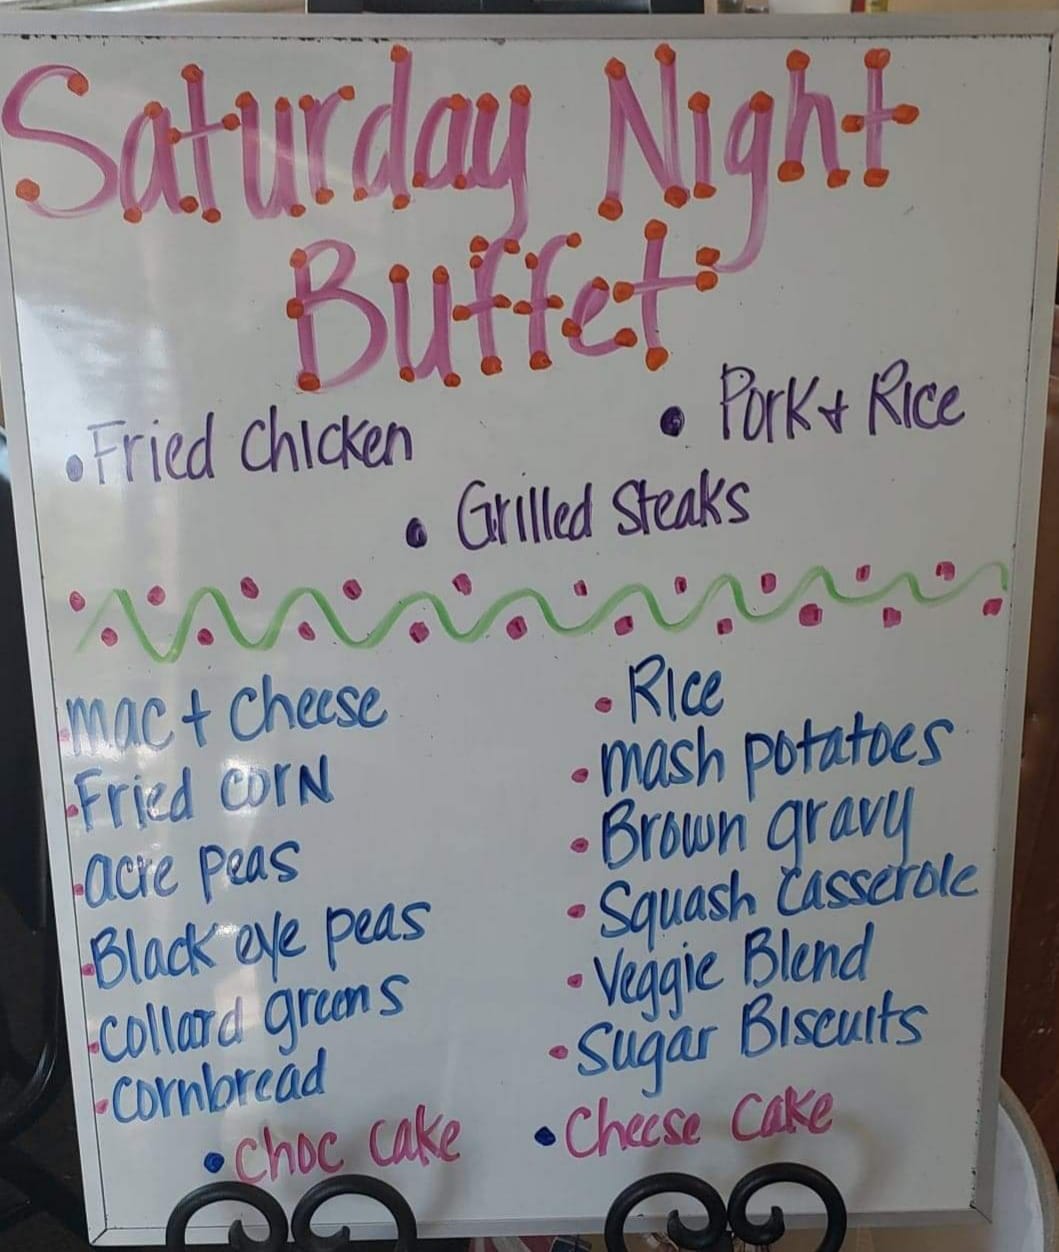 Saturday Night
Buffet
• Fried Chicken
• Pork + Rice
• Grilled Steaks
• mac + Cheese
• Fried corn
• acre peas
• Black eye peas
• collard greens
• cornbread
• Rice
• mash potatoes
• Brown gravy
• Squash Casserole
• Veggie Blend
• Sugar Biscuits
• choc cake
• Cheese Cake